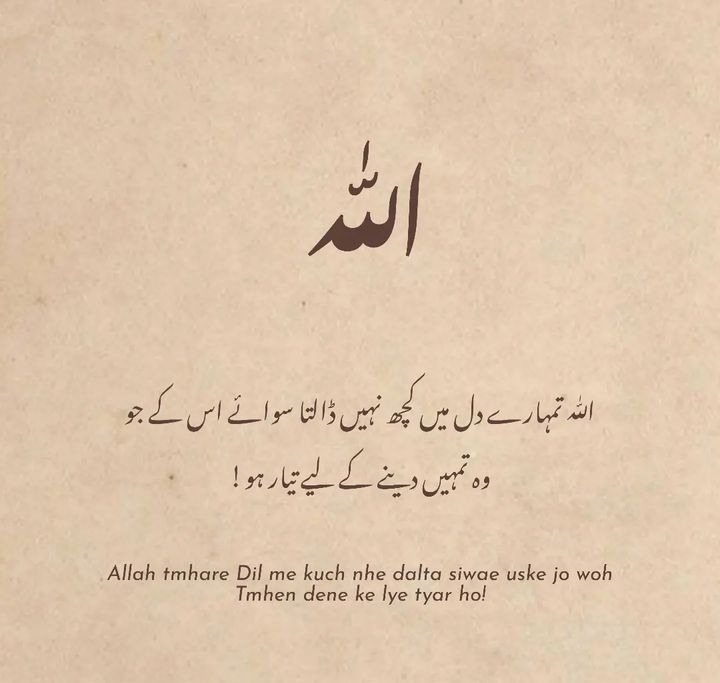 الله
اللہ تمہارے دل میں کچھ نہیں ڈالتا سوائے اس کے جو
وہ تمہیں دینے کے لیے تیار ہو !
Allah tmhare Dil me kuch nhe dalta siwae uske jo woh
Tmhen dene ke lye tyar ho!